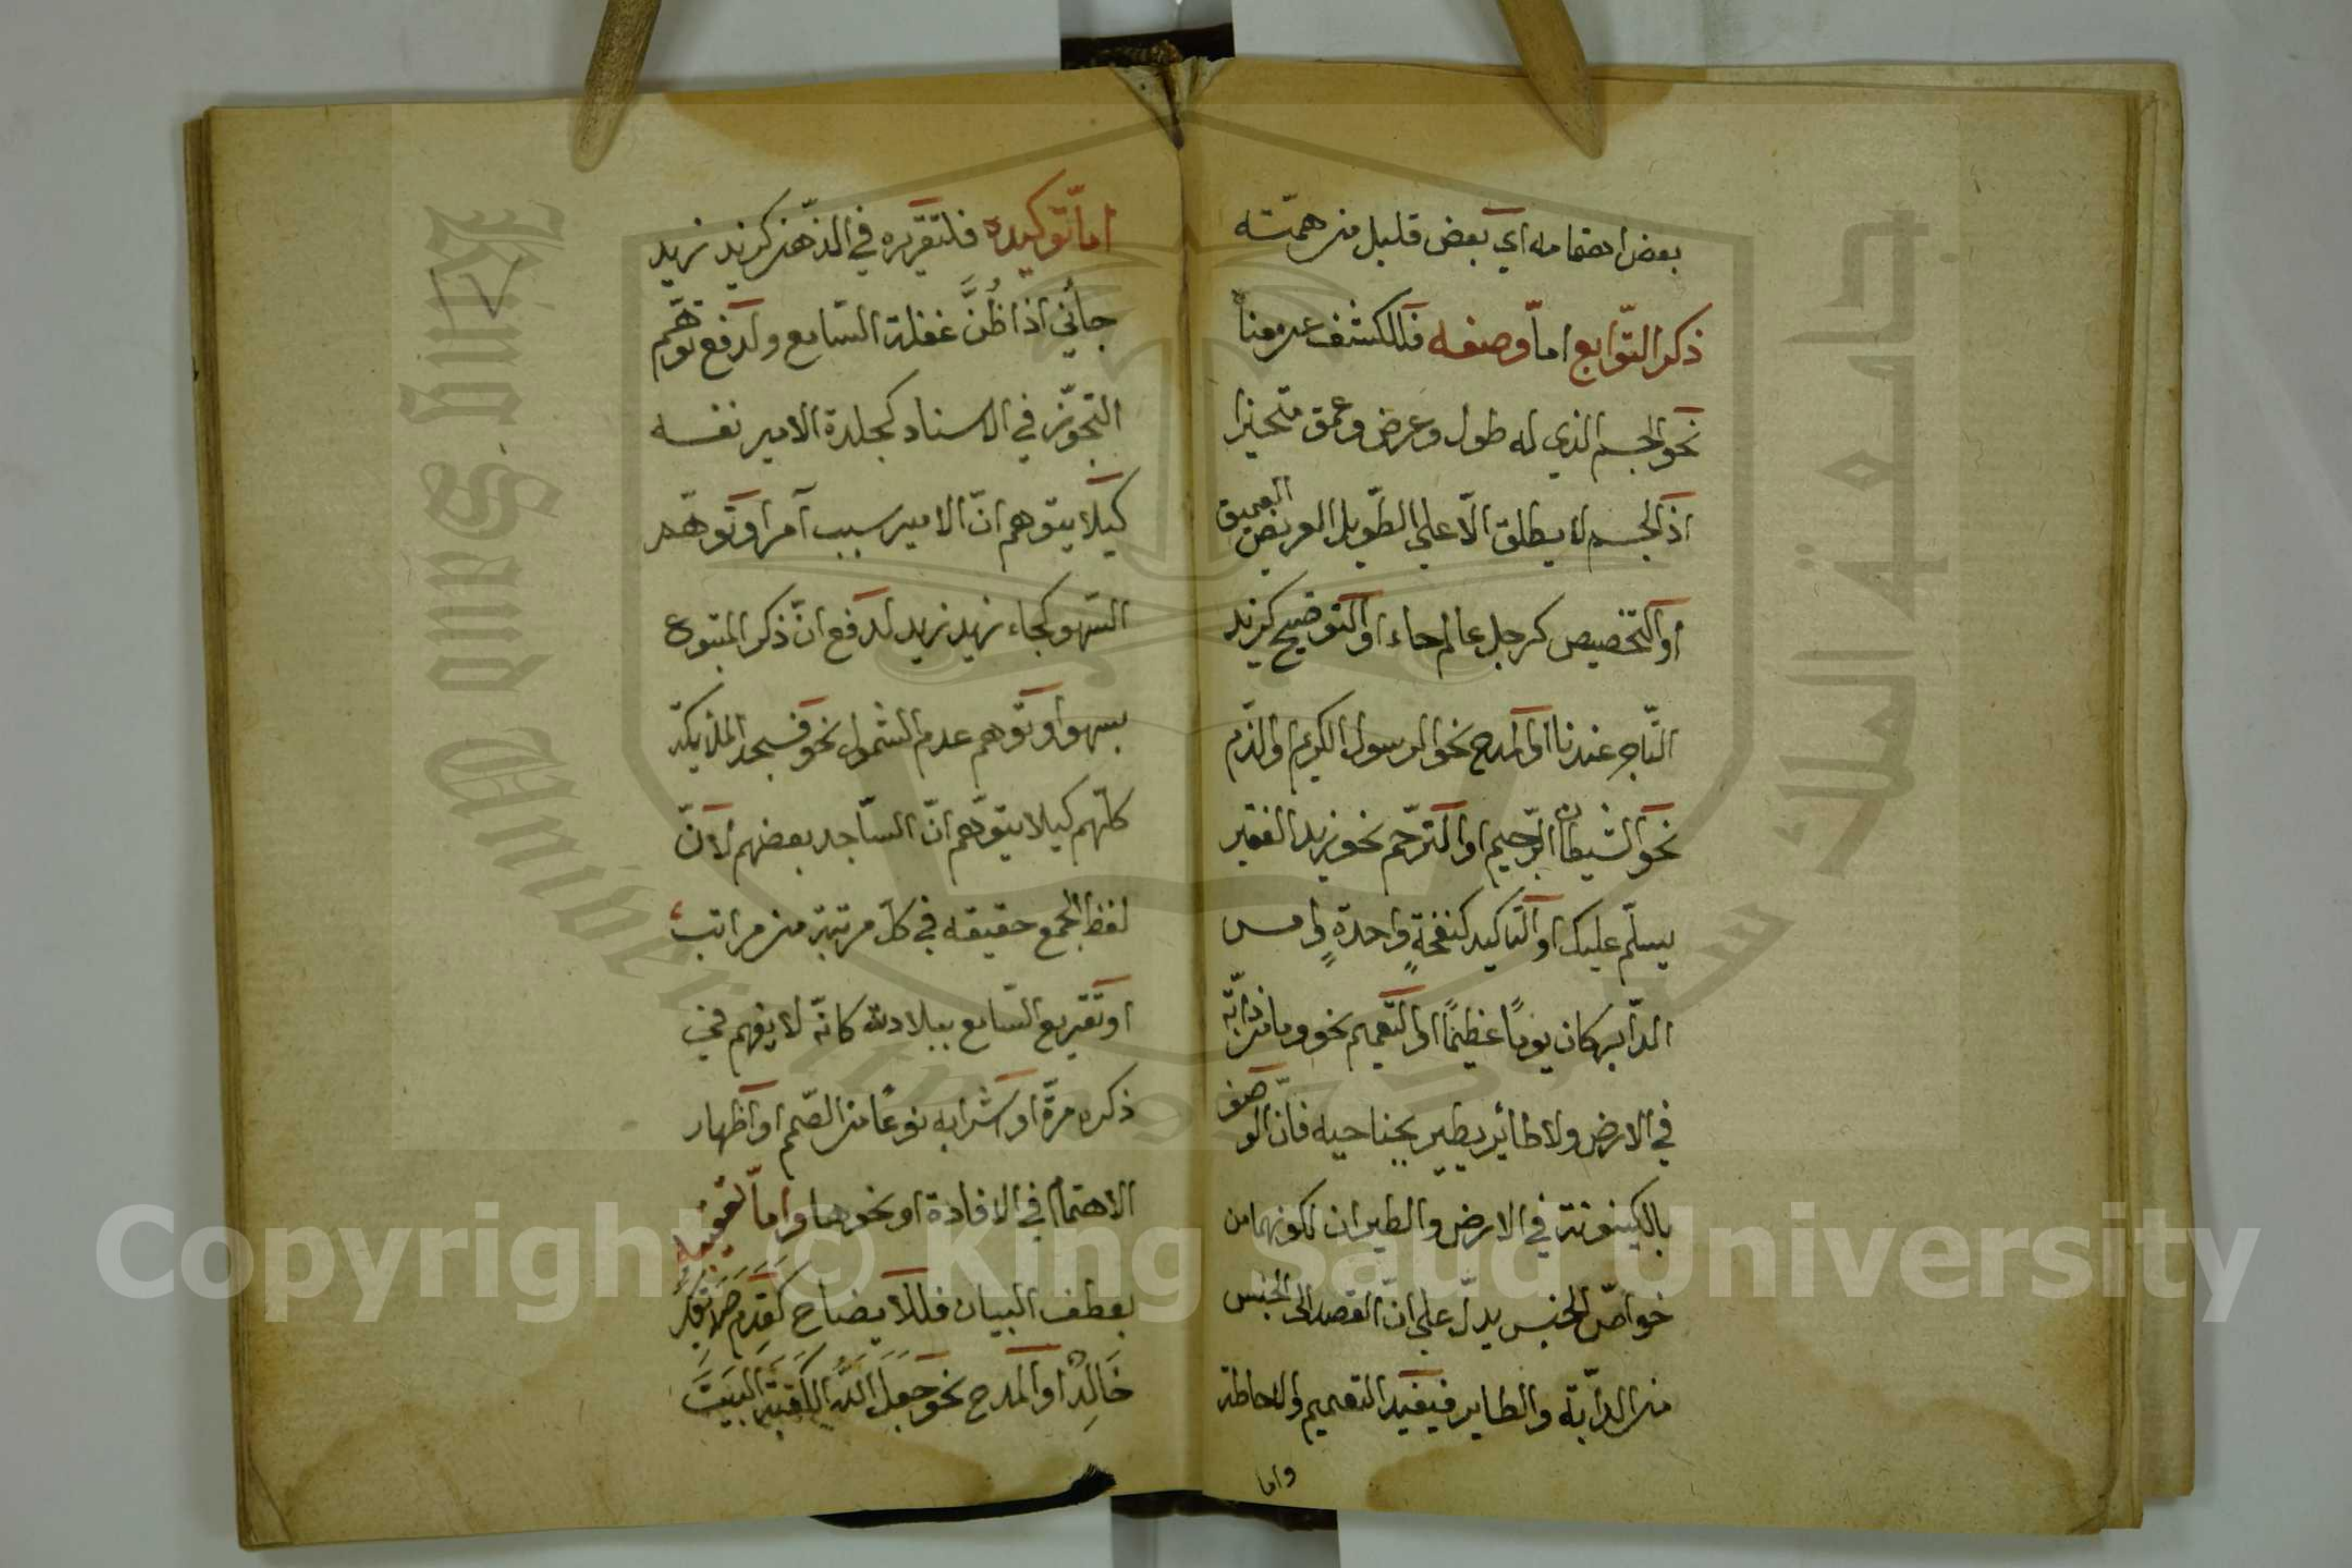 بعض اهتمامه اي بعض قليل من همّته
ذكر التّوابع امّا وصفه فللكشف عن معناه
نحو الجسم الذي له طول وعرض وعمق متحيز
اذ الجسم لا يطلق الّا على الطّويل العريض العميق
او التّخصيص كرجل عالم جاء او التّوضيح كزيد
التّاجر عندنا او المدح نحو الرسول الكريم او الذّم
نحو الشيطان الرّجيم او التّرحّم نحو زيد الفقير
يسلّم عليك او التّاكيد كنفخةٍ واحدةٍ وامس
الدّابر كان يومًا عظيمًا او التّعميم نحو وما من دابّة
في الارض ولا طائر يطير بجناحيه فانّ الوصف
بالكينونة في الارض والطيران لكونهما من
خواصّ الجنس يدلّ على انّ القصد الى الجنس
من الدابّة والطاير فيفيد التعميم والاحاطة
واما
امّا توكيده فلتقريره في الذّهن كزيد زيد
جائني اذا ظُنَّ غفلة السّامع ولدفع توهّم
التجوّز في الاسناد كجلدة الامير نفسه
كيلا يتوهم انّ الامير سبب آمر او توهّم
السّهو كجاء زيد زيد لدفع انّ ذكر المتبوع
بسهو او توهم عدم الشمول نحو فسجد الملائكة
كلّهم كيلا يتوهّم انّ السّاجد بعضهم لانّ
لفظ الجمع حقيقه في كلّ مرتبة من مراتبه
او تقريع السّامع ببلادته كانّه لا يفهم في
ذكره مرّة او كشرابه نوعًا من الصّمم او اظهار
الاهتمام في الافادة او نحوها وامّا تعقيبه
بعطف البيان فللايضاح كقدم صديقك
خَالِدٌ او المدح نحو جَعَلَ اللهُ الكعبةَ البيتَ
جامعة الملك سعود
King Saud University
Copyright © King Saud University